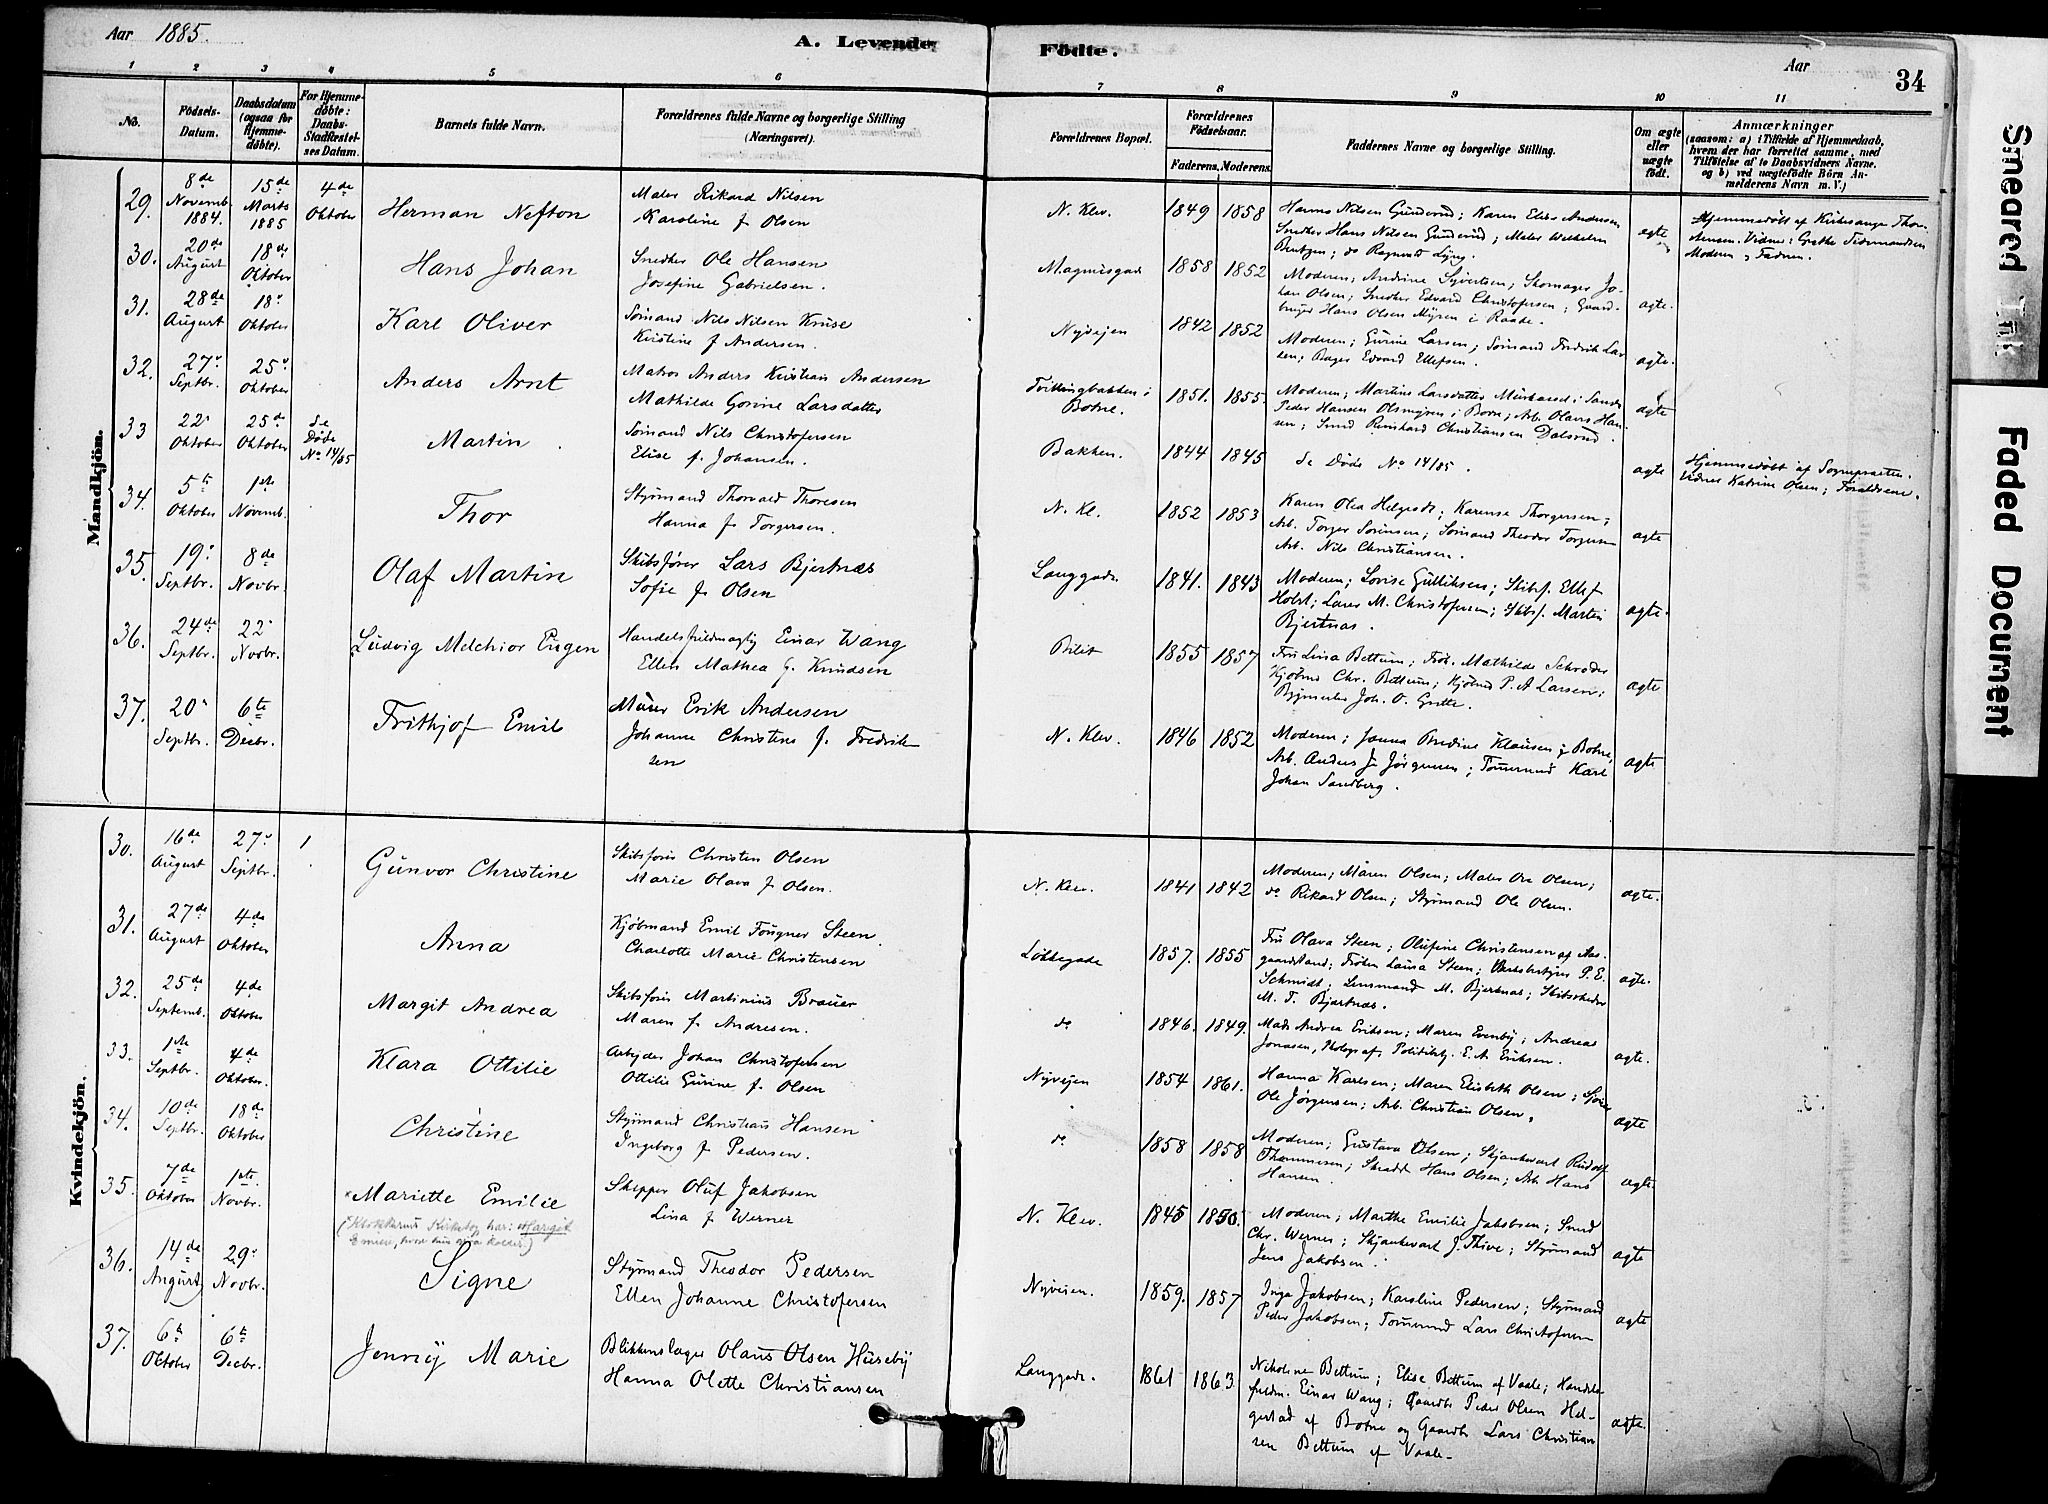 Aar 1885.
A. Levende Födte.
Aar
34
1 2 3 4 5 6 7 8 9 10 11
No.
Födsels-
Datum.
Daabsdatum
(ogsaa for
Hjemme-
döbte).
For Hjemme-
döbte:
Daabs-
Stadfæstel-
ses Datum.
Barnets fulde Navn.
Forældrenes fulde Navne og borgerlige Stilling
(Næringsvei).
Forældrenes Bopæl.
Forældrenes
Födselsaar.
Faderens. Moderens.
Faddernes Navne og borgerlige Stilling.
Om ægte
eller
uægte
födt.
Anmærkninger
(saasom: a) i Tilfælde af Hjemmedaab,
hvem der har forrettet samme, med
Tilföielse af to Daabsvidners Navne.
og b) ved uægtefödte Börn An-
melderens Navn m. V.)
Mandkjön.
29.
8de
Novemb.
1884.
15de
Marts
1885
4de
Oktober
Herman Nefton
Maler Rikard Nilsen
Karoline f Olsen
N. Klev.
1849 1858
Hanna Nilsen Gunderud; Karen Elise Andersen
Snedker Hans Nilsen Gunderud; Maler Wilhelm
Bentzen; do Ragnvald Ljung.
ægte
Hjemmedøbt af Kirkesanger Thor-
Moderen, Fadren.
30.
20de
August
18de
Oktober
Hans Johan
Snedker Ole Hansen
Josefine Gabrielsen.
Magnusgade
1858 1852
Moderen; Andrine Syvertsen; Skomager Jo-
han Olsen; Snedker Edvard Christofersen; Gaard-
bruger Hans Olsen Myren i Raade.
ægte.
31.
28de
August
18
Oktober
Karl Oliver
Sømand Nils Nilsen Kruse
Kirstine f Andersen.
Nyvejen
1842 1852
Moderen; Gurine Larsen; Sømand Fredrik Lar-
sen; Bager Edvard Ellefsen.
ægte.
32.
27
Septbr.
25
Oktober
Anders Arnt
Matros Anders Kristian Andersen
Mathilde Gorine Larsdatter
Tvillingbakken i
Botne.
1851. 1855.
Moderen; Martine Larsdatter Murkarud i Sande
Peder Hansen Olsmyren i Botne; Arb. Olaves Han-
sen; Smed Reinhard Christiansen Dalsrud.
ægte
33
22
Oktober
25de
Oktober
Se
Døde
No 14/85
Martin
Sømand Nils Christofersen
Elise f. Johansen.
Bakken.
1844 1845
Se Døde No 14/85.
ægte
Hjemmedøbt af Sognepræsten.
Vidner Katrine Olsen; Forældrene.
34.
5te
Oktober
1ste
Novemb.
Thor
Styrmand Thorvald Thoresen
Hanna f. Torgersen.
N. Kl.
1852 1853
Karen Olea Helgesdt; Karense Thorgersen;
Arb. Torger Sørensen; Sømand Theodor Torgersen
Arb. Nils Christiansen.
ægte
35.
19
Septbr.
8de
Novbr.
Olaf Martin
Skibsfører Lars Bjertnæs
Sofie f. Olsen
Langgade.
1841. 1843
Moderen; Lovise Gulliksen; Skibsf. Ellef
Holst; Lars M. Christofersen; Skibsf. Martin
Bjertnæs.
ægte.
36.
24de
Septbr.
22
Novbr.
Ludvig Melchior Eugen
Handelsfuldmægtig Einar Wang
Ellen Mathea f. Knudsen
Bilit
1855 1857
Fru Lina Bettum; Frøk. Mathilde Schrøder
Kjøbmd Chr. Bettum; Kjøbmd P. A Larsen;
Joh. O. Grette.
ægte
37.
20
Septbr.
6te
Decbr.
Frithjof Emil
Murer Erik Andersen
Johanne Christine f. Fredrik-
sen
N. Klev.
1846 1852
Moderen; Janna Bredine Klausen i Botne,
Arb. Anders J. Jørgensen; Tømmermd Karl
Johan Sandberg.
ægte
Kvindekjön.
30.
16de
August
27
Septbr.
1
Gunvor Christine
Skibsfører Christen Olsen
Marie Olava f Olsen.
N. Klev.
1841 1842
Moderen; Maren Olsen; Maler Ove Olsen;
do Rikard Olsen; Styrmand Ole Olsen.
ægte.
31.
27de
August
4de
Oktober
Anna
Kjøbmand Emil Fougner Steen
Charlotte Marie Christensen
Løkkegade
1857. 1855
Fru Olava Steen; Olufine Christensen af Aas-
gaardstrand; Frøken Laura Steen; P. E.
Schmidt; Lensmand M. Bjertnæs; Skibsreder
M. T. Bjertnæs.
ægte.
32.
25de
Septemb.
4de
Oktober
Margit Andrea
Skibsfører Martinius Brauer
Maren f. Andresen.
do
1846. 1849.
Mads Andrea Eriksen; Maren Evenby; Andreas
Jonasen, Photograf; Politibtj. E. A. Eriksen.
ægte.
33.
1ste
Septbr.
4de
Oktober.
Klara Ottilie
Arbejder Johan Christofersen
Ottilie Gurine f. Olsen
Nyvejen
1854 1861.
Hanna Karlsen; Maren Elisbeth Olsen;
Ole Jørgensen; Arb. Christian Olsen.
ægte
34.
10de
Septbr.
18de
Oktober
Christine
Styrmand Christian Hansen
Ingeborg f Pedersen.
do
1858 1858
Moderen; Gustava Olsen; Skjænkevært Rudolf
Thommesen; Skrædd Hans Olsen; Arb. Hans
Hansen.
ægte.
35.
7de
Oktober
1ste.
Novbr.
*Mariette Emilie
(*Klokkerens Kirkebog har: Margit
Emilie, hvad hun ogsaa kaldes.)
Skipper Oluf Jakobsen
Lina f Werner
N. Klev.
1845 1850.
Moderen; Marthe Emilie Jakobsen; Smed
Chr. Werner; Skjænkevært J. Thive; Styrmand
Jens Jakobsen.
ægte
36.
14de
August
29
Novbr.
Signe
Styrmand Theodor Pedersen
Ellen Johanne Christofersen
Nyveien.
1859. 1857
Inga Jakobsen; Karoline Pedersen; Styrmand
Peder Jakobsen; Tømmermd Lars Christofersen
ægte
37.
6te
Oktober
6te
Decbr.
Jenny Marie
Blikkenslager Olaus Olsen Huseby
Hanna Olette Christiansen
Langgade.
1861 1863.
Nikoline Bettum; Elise Bettum af Vaale; Handels-
fuldm. Einar Wang; Gaardbr Peder Olsen Hel-
gestad af Botne og Gaardbr Lars Christian-
sen Bettum af Vaale.
ægte.
Smeared Ink
Faded Document